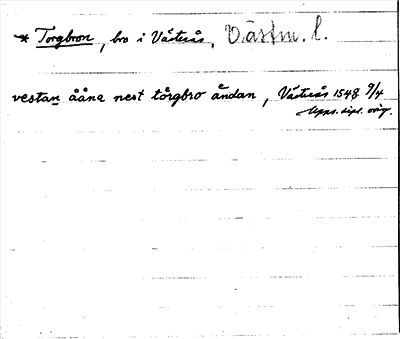 * Torgbron, bro i Västerås, Västm. l.
vestan ååna nest tårgbro ändan, Västerås 1548 9/4
Upps. dipl. orig.